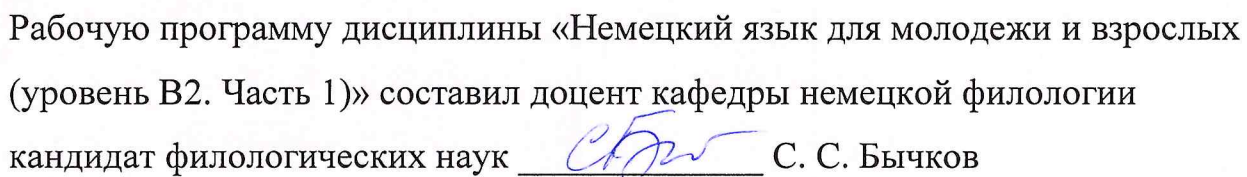 Рабочую программу дисциплины «Немецкий язык для молодежи и взрослых
(уровень В2. Часть 1)» составил доцент кафедры немецкой филологии
кандидат филологических наук С. С. Бычков